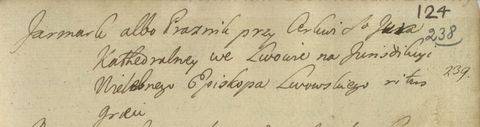 124
Jarmark albo Praznik przy Cerkwi S° Jura
238
Kathedralney we Lwowie na Jurisdikcyi
Nielebnego Episkopa Lwowskiego ritus
239.
Graeci